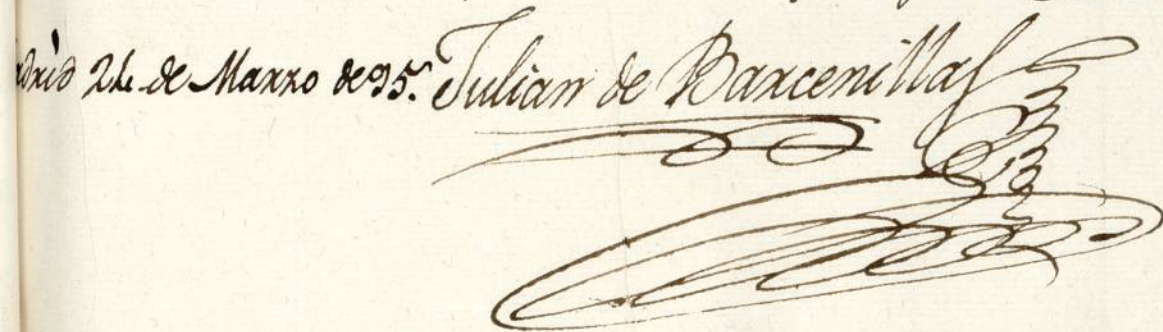 adrid 24 de Marzo de 95. Julian de Barcenilla